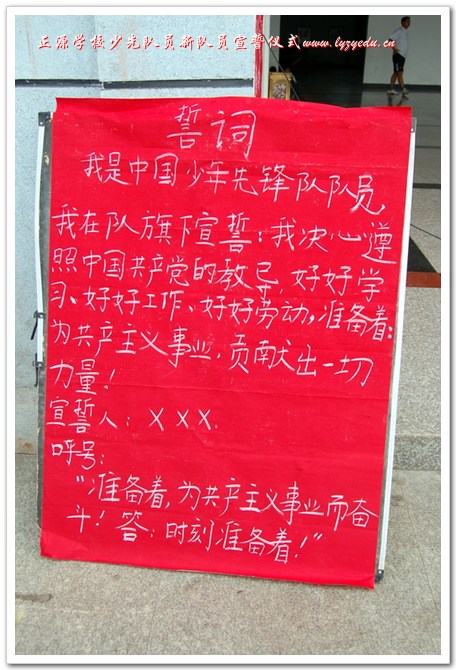 正源学校少先队员新队员宣誓仪式www.lyzyedu.cn
誓词
我是中国少年先锋队队员
我在队旗下宣誓：我决心遵
照中国共产党的教导，好好学
习、好好工作、好好劳动，准备着：
为共产主义事业，贡献出一切
力量！
宣誓人：XXX.
呼号：
“准备着，为共产主义事业而奋
斗！答：时刻准备着！”